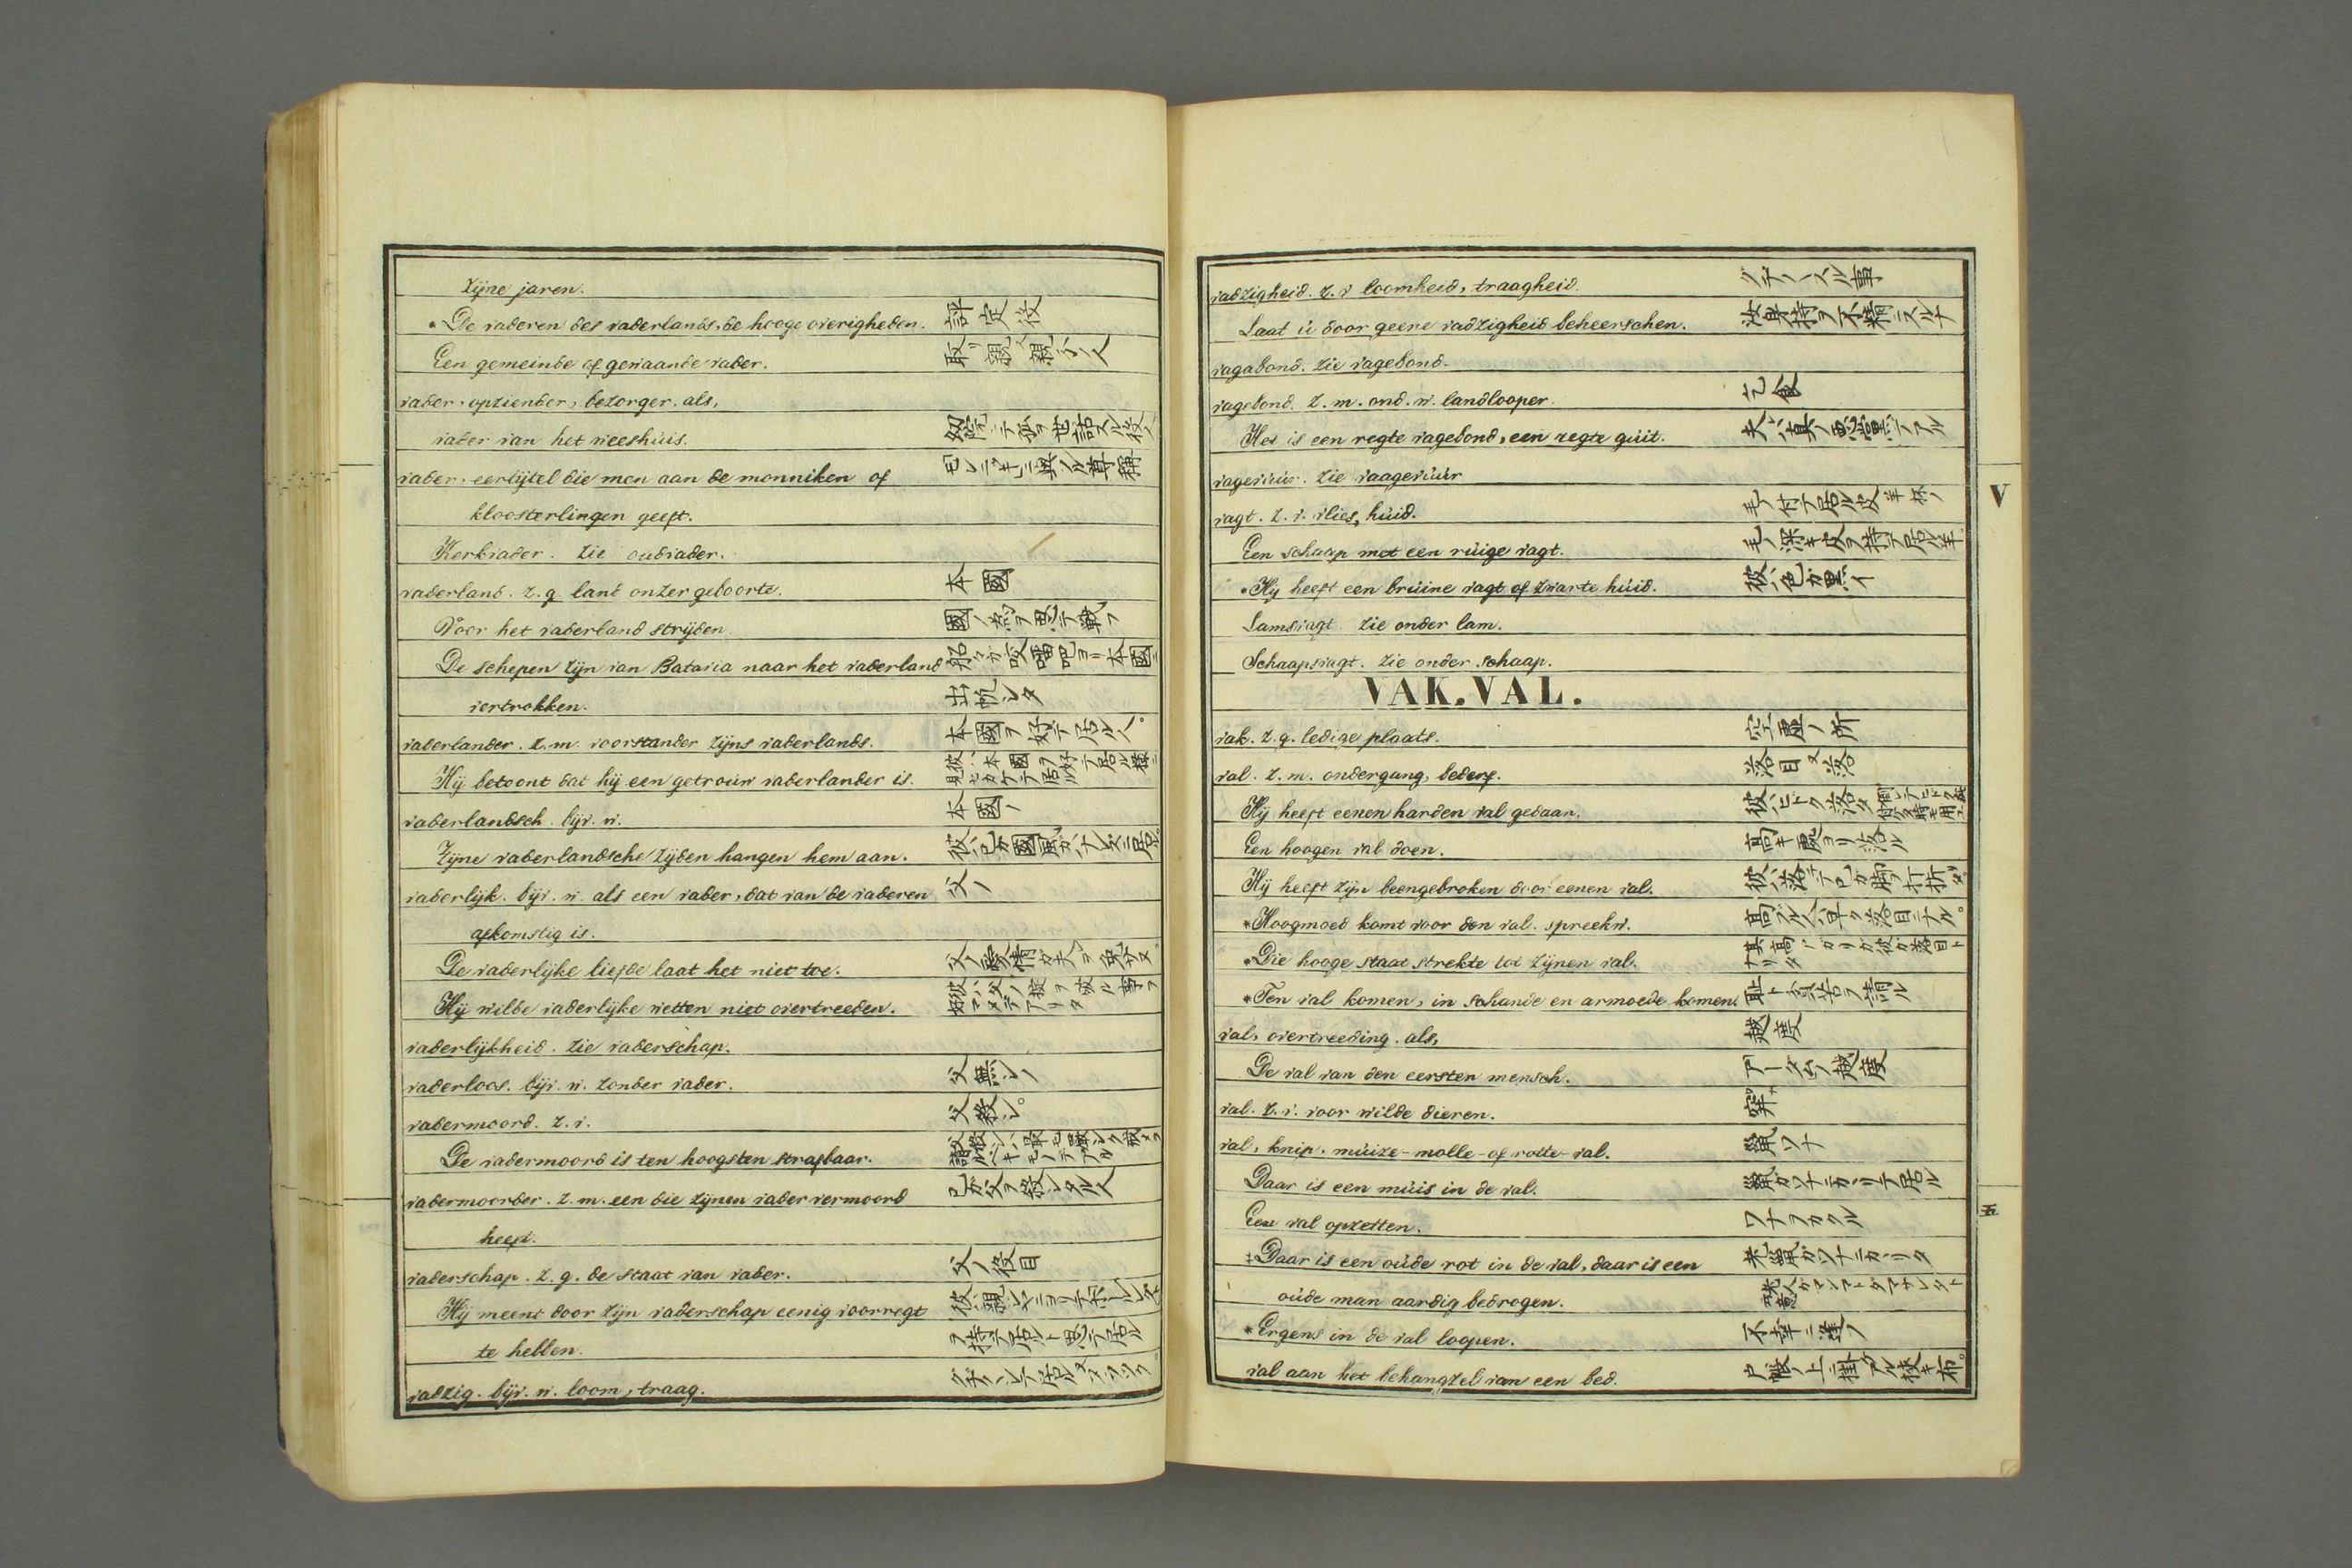 zijne jaren.
*De vaderen des vaderlands, de hooge overigheden. 評定役
Een gemeinde of gewaande vader.
vader, opziender, bezorger. als,
vader van het weeshuis.
vader, eertijtel die men aan de monniken of
kloosterlingen geeft.
Kerkvader. zie oudvader.
vaderland. z. g. land onzer geboorte. 本國
Voor het vaderland strijden.
De schepen zijn van Batavia naar het vaderland 船ガ咬𠺕吧ヨリ本國ニ
vertrokken. 出帆シタ
vaderlander. z. m. voorstander zijns vaderlands. 本國ヲ好テ居ル人。
Hij betoont dat hij een getrouw vaderlander is.
vaderlandsch. bijv. w. 本國ノ
Zijne vaderlandsche zijden hangen hem aan.
vaderlijk. bijv. w. als een vader, dat van de vaderen 父ノ
afkomstig is.
De vaderlijke liefde laat het niet toe. 父ノ愛情ガ夫ヲ免サヌ
Hij wilde vaderlijke wetten niet overtreeden.
vaderlijkheid. zie vaderschap.
vaderloos. bijv. w. zonder vader. 父無シノ
vadermoord. z. v. 父殺シ。
De vadermoord is ten hoogsten strafbaar.
vadermoorder. z. m. een die zijnen vader vermoord 己ガ父ヲ殺シタル人
heeft.
vaderschap. z. g. de staat van vader. 父ノ役目
Hij meent door zijn vaderschap eenig voorregt
te hebben. ヲ持テ居ルト思テ居ル
vadzig. bijv. w. loom, traag.
vadzigheid. z. v. loomheid, traagheid.
Laat ù door geene vadzigheid beheerschen. 汝身持ヲ不精ニスルナ
vagabond. zie vagebond.
vagebond. z. m. ond. w. landlooper. 乞食
Het is een regte vagebond, een regte gùit. 夫ハ真ノ悪黨デアル
vagevùùr. zie vaagevùùr
vagt. z. v. vlies, hùid. 毛ノ付テ居ル皮 羊杯ノ
Een schaap met een rùige vagt. 毛ノ深キ皮ヲ持テ居ル羊。
*Hij heeft een brùine vagt of zwarte hùid. 彼ハ色ガ黒イ
Lamsvagt. zie onder lam.
Schaapsvagt. zie onder schaap.
VAK. VAL.
vak. z. g. ledige plaats. 空虚ノ所
val. z. m. ondergang, bederf. 落目又落
Hij heeft eenen harden val gedaan. 彼ハヒドク落タ
Een hoogen val doen. 高キ處ヨリ落ル
Hij heeft zijn been gebroken door eenen val. 彼ハ落テ己ガ脚ヲ打折タ
*Hoogmoed komt voor den val. spreekw.
*Die hooge staat strekte tot zijnen val.
*Ten val komen, in schande en armoede komen.
val, overtreeding. als, 越度
De val van den eersten mensch. アーダムノ越度
val. z. v. voor wilde dieren. 穽
val, knip, mùize-molle-of rotte-val. 鼠ワナ
Daar is een mùis in de val. 鼠ガワナニカヽリテ居ル
Eene val opzetten. ワナヲカクル
‡Daar is een oùde rot in de val, daar is een 老鼠ガワナニカヽリタ
oùde man aardig bedrogen.
*Ergens in de val loopen. 不幸ニ逢フ
val aan het behangzel van een bed. 戸帳ノ上ニ掛テアル狭キ布。
V